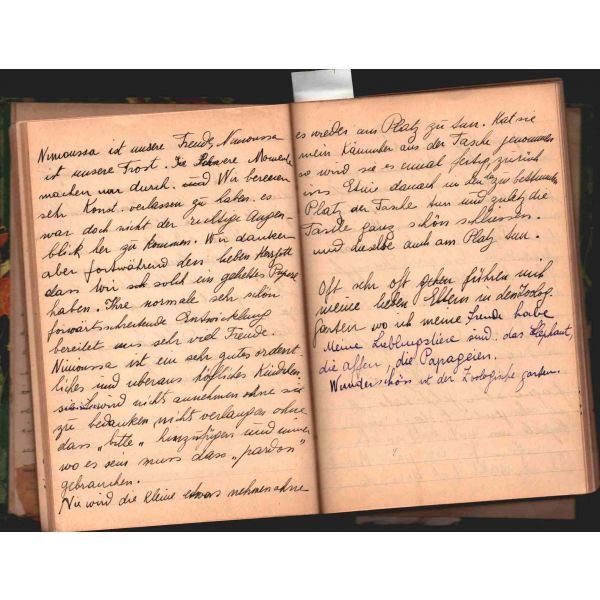 Nimoussa ist unsere Freude Nimoussa
ist unsere Trost. Die Schwere Momente
machen war durch. und Wir bereuen
sehr Konst. verlassen zu haben. es
war doch nicht der richtige Augen-
blick her zu kommen. Wir danken
aber fortwährend dem lieben Herrgott
dass wir solch ein geliebtes
haben. Ihre normale sehr schön
forwärtsschreitende Entwicklung
bereitet uns sehr viel Freude.
Nimoussa ist ein sehr gutes ordent-
liches und überaus höfliches Kindchen
sie wird nicht annehmen ohne sie
zu bedanken nicht verlangen ohne
dass "bitte" hinzufügen und immer
wo es sein muss dass "pardon"
gebrauchen.
Nie wird die Kleine etwas nehmen ohne
es wieder am Platz zu tun. Hat sie
mein Kämmchen aus der Tasche genommen
so wird sie es einmal fertig zurück
ins Etuie danach in den bestimmten
Platz der Tasche tun und zuletzt die
Tasche ganz schön schliessen.
und dieselbe auch am Platz tun.
Oft sehr oft gehen führen mich
meine lieben Eltern in den Zoolog.
Garten wo ich meine Freude habe
Meine Lieblingstiere sind: das Elephant,
die affen, die Papageien.
Wunderschön ist der Zoologische garten.